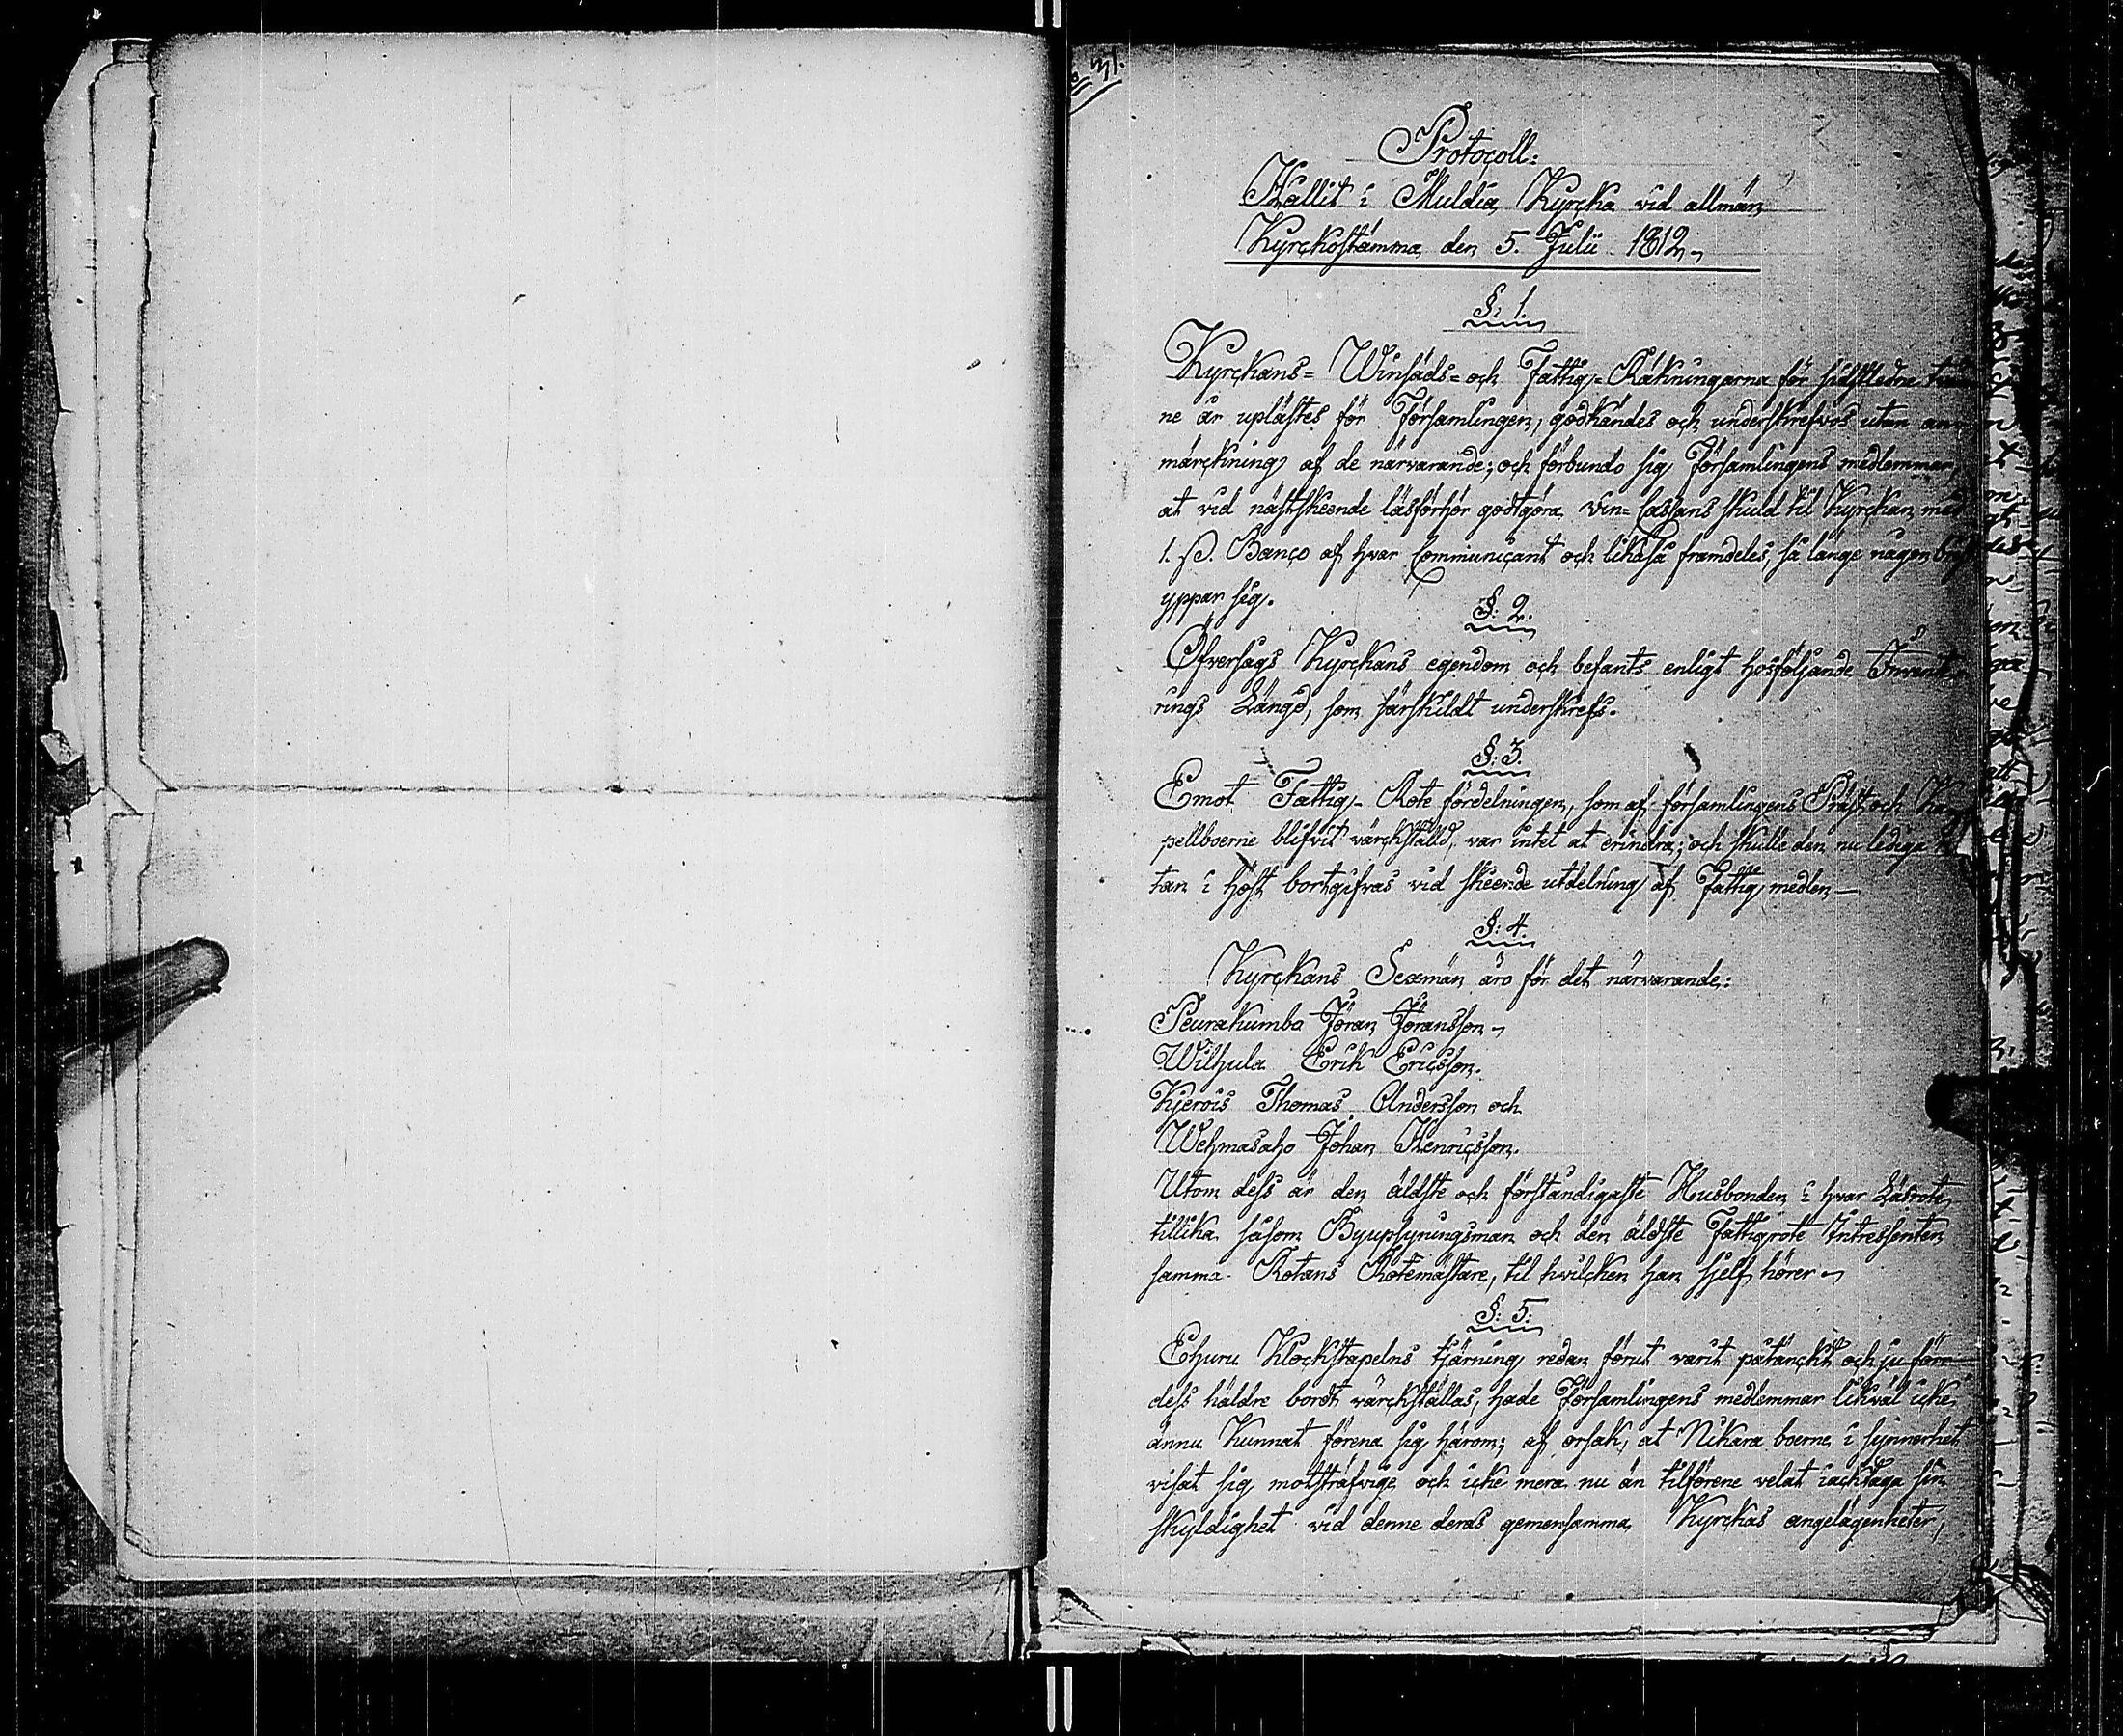 31.
Protocoll:
Hållit i Muldia Kyrcka vid allmän
Kyrckostämma den 5. Julii 1812.
§: 1.
Kyrckans= Winsäds= och Fattig=Räkningarna för sidstledne
ne år uplästes för Församlingen, godkändes och underskrefvos utan an
märckning af de närvarande; och förbundo sig Församlingens medlemmar,
at vid nästskeende läsförhör godtgöra Vin=Cassans skuld til Kyrckan med
1. ß. Banco af hvar Communicant och likaså framdeles, så länge någon
yppar sig.
§: 2.
Öfversågs Kyrckans egendom och befants enligt hosföljande Invente
rings Längd, som särskildt underskrefs.
§: 3.
Emot Fattig-Rote fördelningen, som af församlingens Präst och Ka
pellboerne blifvit värckställd, var intet at erindra; och skulle den nu lediga
tan i höst bortgifvas vid skeende utdelning af Fattige medlen —
§: 4.
Kyrckans Sexmän äro för det närvarande:
Peurakumbo Jöran Jöransson
Wilhula Erik Ericsson.
Kjerois Thomas Andersson och
Wehmasaho Johan Henricsson.
Utom dess är den äldste och förståndigaste Husbonden i hvar Läsrote
tillika såsom Byupsyningsman och den äldste Fattigrote Intressenten
samma Rotans Rotemästare, til hvilcken han sjelf hörer
§: 5.
Ehuru Klockstapelns tjärning redan förut varit påtänckt och ju förr
dess häldre bordt värckställas, hade Församlingens medlemmar likväl icke
ännu kunnat förena sig härom; af orsak, at Nikara boerne i synnerhet
visat sig motsträfvige och icke mera nu än tilförene velat iacktaga sin
skyldighet vid denne deras gemensamma Kyrckas angelägenheter,